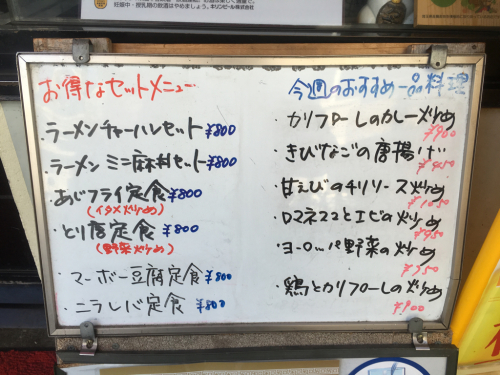 妊娠中・授乳期の飲酒はやめましょう。キリンビール株式会社
お得なセットメニュー
・ラーメンチャーハンセット ¥800
・ラーメン ミニ麻料セット ¥800
・あじフライ定食 ¥800
(イタメ炒め)
・とり唐定食 ¥800
(野菜炒め)
・マーボー豆腐定食 ¥800
・ニラレバ定食 ¥800
今週のおすすめ一品料理
・カリフローレのカレー炒め
¥900
・きびなごの唐揚げ
・甘えびのチリソース炒め
¥1050
・ロマネスコとエビの炒め
¥950
・ヨーロッパ野菜の炒め
・鶏とカリフローレの炒め
¥900